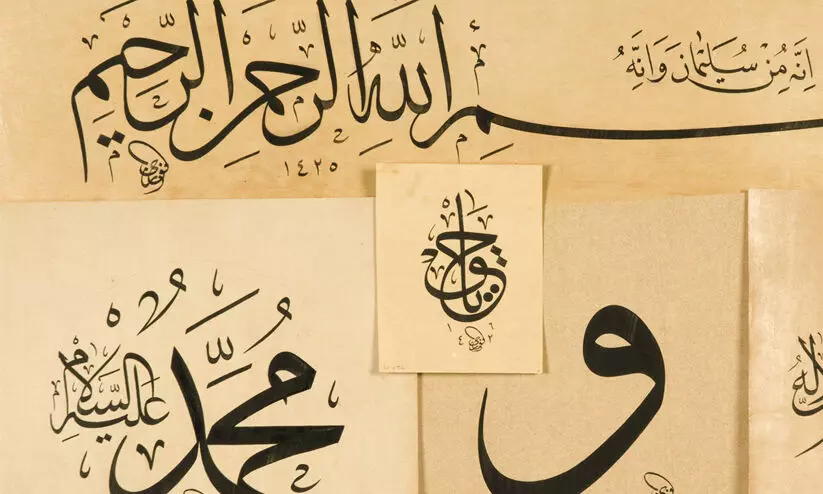 اِنَّهُ مِنْ سُلَيْمٰنَ وَاِنَّهُ
سمِ اللهِ الرَّحْمٰنِ الرَّحِيمِ
١٤٢٥
يا حق
١٤٢٦
مُحَمَّد
عَلَيْهِ السَّلَام
و